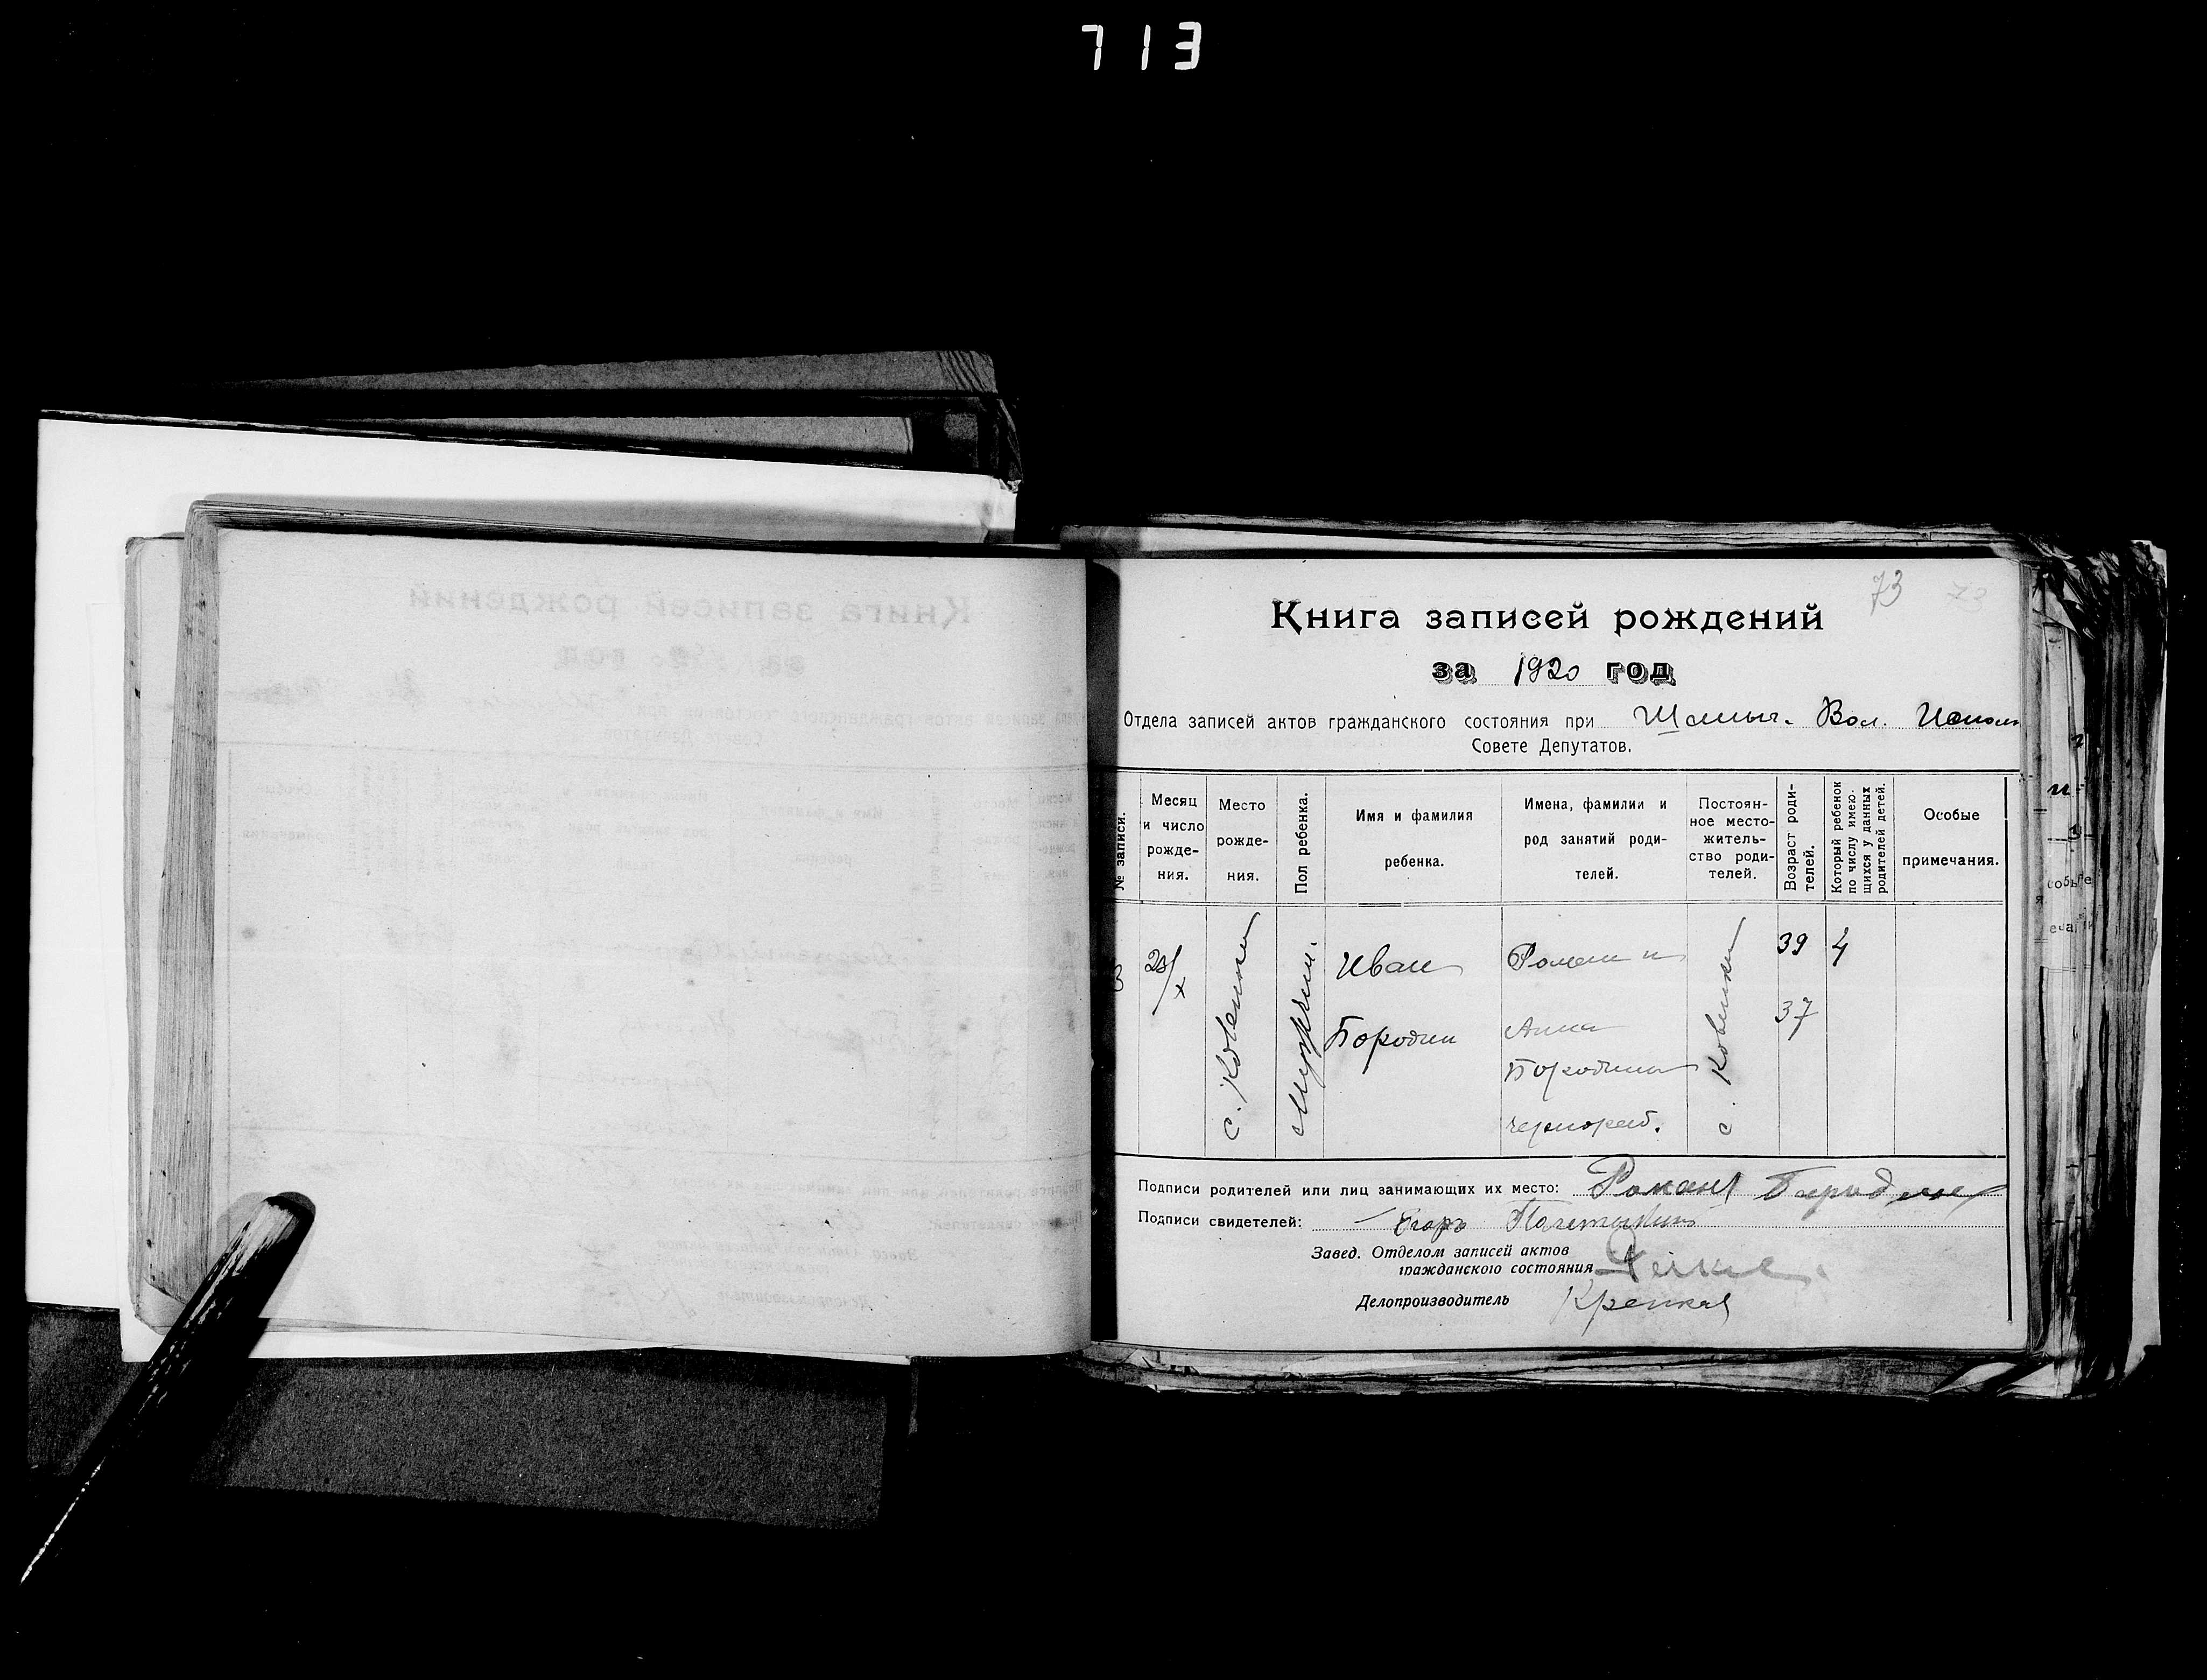 713
73
Книга записей рождений
за 1920 год
Отдела записей актов гражданского состояния при Шамыч. Вол. Исполн
Совете Депутатов.
№ записи.
Месяц и число рожде- ния.
Место рожде- ния.
Пол ребенка.
Имя и фамилия ребенка.
Имена, фамилии и род занятий роди- телей.
Постоян- ное место- житель- ство роди- телей.
Возраст роди- телей.
Который ребенок по числу имею- щихся у данных родителей детей.
Особые примечания.
с. Ковешки
Мужчин.
Иван
Бородин
Роман и
Анна
Бородины
чернораб.
с. Ковешки
39
37
4
Подписи родителей или лиц занимающих их место: Роман Бородин
Подписи свидетелей: Егоръ
Завед. Отделом записей актов
гражданского состояния
Делопроизводитель